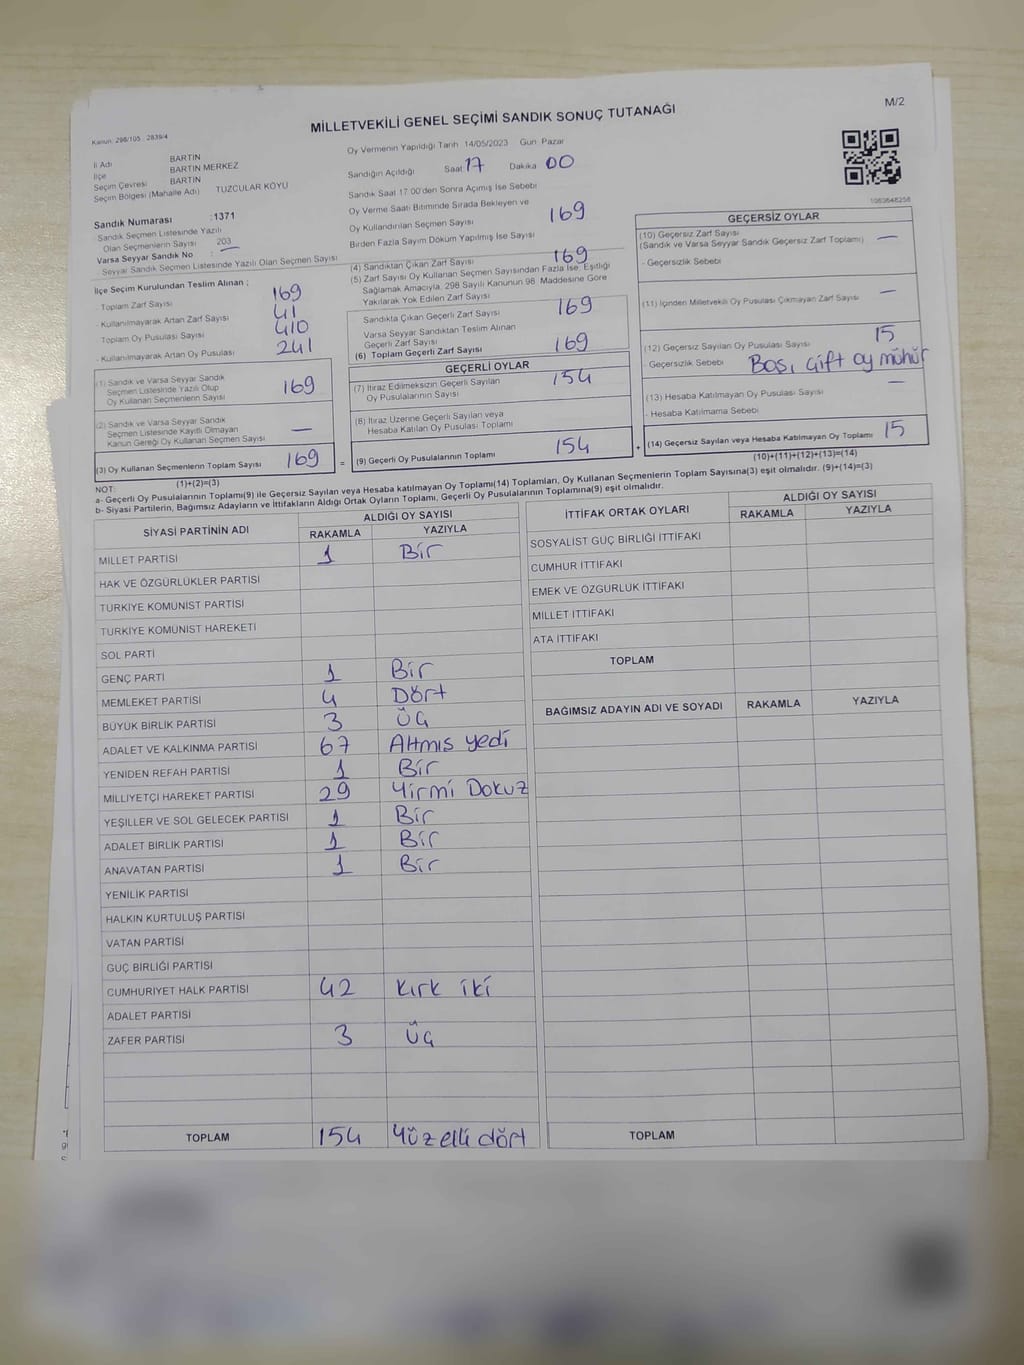 MİLLETVEKİLİ GENEL SEÇİMİ SANDIK SONUÇ TUTANAĞI
M/2
Kanun: 298/105 2839/4
İl Adı BARTIN
İlçe BARTIN MERKEZ
Seçim Çevresi BARTIN
Seçim Bölgesi (Mahalle Adı) TUZCULAR KOYU
Sandık Numarası :1371
Sandık Seçmen Listesinde Yazılı
Olan Seçmenlerin Sayısı 203
Varsa Seyyar Sandık No :
Seyyar Sandık Seçmen Listesinde Yazılı Olan Seçmen Sayısı
İlçe Seçim Kurulundan Teslim Alınan ;
- Toplam Zarf Sayısı 169
- Kullanılmayarak Artan Zarf Sayısı 41
- Toplam Oy Pusulası Sayısı 410
- Kullanılmayarak Artan Oy Pusulası 241
(1) Sandık ve Varsa Seyyar Sandık
Seçmen Listesinde Yazılı Olup
Oy Kullanan Seçmenlerin Sayısı 169
(2) Sandık ve Varsa Seyyar Sandık
Seçmen Listesinde Kayıtlı Olmayan
Kanun Gereği Oy Kullanan Seçmen Sayısı —
(3) Oy Kullanan Seçmenlerin Toplam Sayısı 169
(1)+(2)=(3)
Oy Vermenin Yapıldığı Tarih 14/05/2023 Gün Pazar
Sandığın Açıldığı Saat 17 Dakika 00
Sandık Saat 17:00'den Sonra Açımış İse Sebebi
Oy Verme Saati Bitiminde Sırada Bekleyen ve
Oy Kullandırılan Seçmen Sayısı 169
Birden Fazla Sayım Döküm Yapılmış İse Sayısı
(4) Sandıktan Çıkan Zarf Sayısı 169
(5) Zarf Sayısı Oy Kullanan Seçmen Sayısından Fazla İse, Eşitliği
Sağlamak Amacıyla, 298 Sayılı Kanunun 98. Maddesine Göre
Yakılarak Yok Edilen Zarf Sayısı
Sandıkta Çıkan Geçerli Zarf Sayısı 169
Varsa Seyyar Sandıktan Teslim Alınan
Geçerli Zarf Sayısı
(6) Toplam Geçerli Zarf Sayısı 169
GEÇERLİ OYLAR
(7) İtiraz Edilmeksizin Geçerli Sayılan
Oy Pusulalarının Sayısı 154
(8) İtiraz Üzerine Geçerli Sayılan veya
Hesaba Katılan Oy Pusulası Toplamı
= (9) Geçerli Oy Pusulalarının Toplamı 154
1083648258
GEÇERSİZ OYLAR
(10) Geçersiz Zarf Sayısı —
(Sandık ve Varsa Seyyar Sandık Geçersiz Zarf Toplamı)
- Geçersizlik Sebebi
(11) İçinden Milletvekili Oy Pusulası Çıkmayan Zarf Sayısı —
(12) Geçersiz Sayılan Oy Pusulası Sayısı 15
- Geçersizlik Sebebi Boş, çift oy mühür
(13) Hesaba Katılmayan Oy Pusulası Sayısı —
- Hesaba Katılmama Sebebi
+ (14) Geçersiz Sayılan veya Hesaba Katılmayan Oy Toplamı 15
(10)+(11)+(12)+(13)=(14)
NOT:
a- Geçerli Oy Pusulalarının Toplamı(9) ile Geçersiz Sayılan veya Hesaba katılmayan Oy Toplamı(14) Toplamları, Oy Kullanan Seçmenlerin Toplam Sayısına(3) eşit olmalıdır. (9)+(14)=(3)
b- Siyasi Partilerin, Bağımsız Adayların ve İttifakların Aldığı Ortak Oyların Toplamı, Geçerli Oy Pusulalarının Toplamına(9) eşit olmalıdır.
SİYASİ PARTİNİN ADI ALDIĞI OY SAYISI
RAKAMLA YAZIYLA
MİLLET PARTİSİ 1 Bir
HAK VE ÖZGÜRLÜKLER PARTİSİ
TÜRKİYE KOMÜNİST PARTİSİ
TÜRKİYE KOMÜNİST HAREKETİ
SOL PARTİ
GENÇ PARTİ 1 Bir
MEMLEKET PARTİSİ 4 Dört
BÜYÜK BİRLİK PARTİSİ 3 Üç
ADALET VE KALKINMA PARTİSİ 67 Altmış yedi
YENİDEN REFAH PARTİSİ 1 Bir
MİLLİYETÇİ HAREKET PARTİSİ 29 Yirmi Dokuz
YEŞİLLER VE SOL GELECEK PARTİSİ 1 Bir
ADALET BİRLİK PARTİSİ 1 Bir
ANAVATAN PARTİSİ 1 Bir
YENİLİK PARTİSİ
HALKIN KURTULUŞ PARTİSİ
VATAN PARTİSİ
GÜÇ BİRLİĞİ PARTİSİ
CUMHURİYET HALK PARTİSİ 42 Kırk iki
ADALET PARTİSİ
ZAFER PARTİSİ 3 Üç
TOPLAM 154 Yüz elli dört
İTTİFAK ORTAK OYLARI ALDIĞI OY SAYISI
RAKAMLA YAZIYLA
SOSYALİST GÜÇ BİRLİĞİ İTTİFAKI
CUMHUR İTTİFAKI
EMEK VE ÖZGÜRLÜK İTTİFAKI
MİLLET İTTİFAKI
ATA İTTİFAKI
TOPLAM
BAĞIMSIZ ADAYIN ADI VE SOYADI RAKAMLA YAZIYLA
TOPLAM